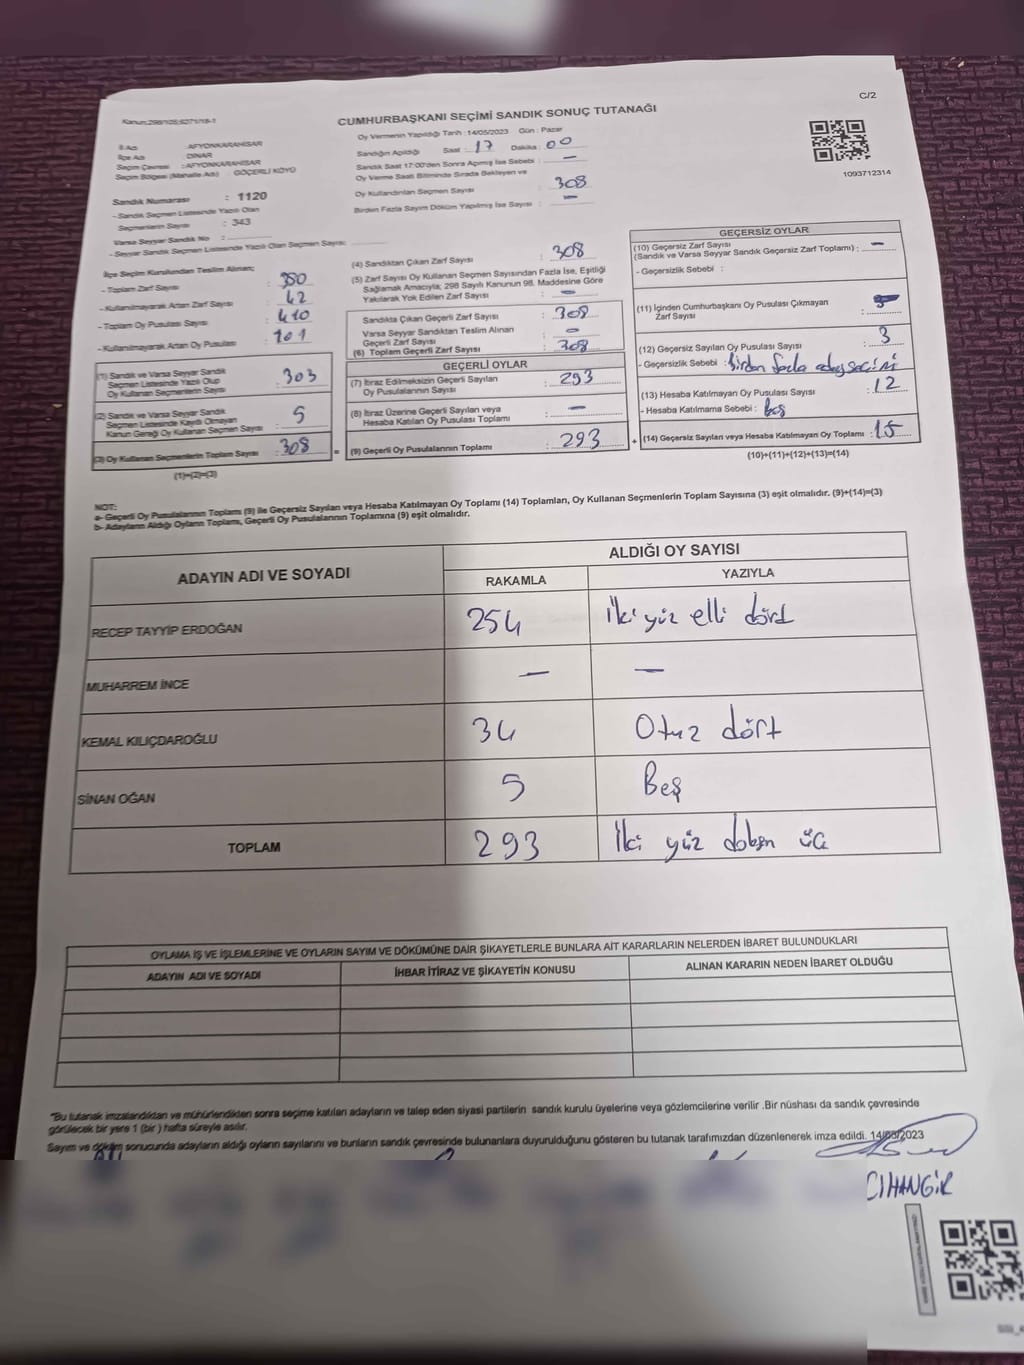 C/2
Kanun:298/105;6271/18-1
CUMHURBAŞKANI SEÇİMİ SANDIK SONUÇ TUTANAĞI
1093712314
İl Adı : AFYONKARAHİSAR
İlçe Adı : DİNAR
Seçim Çevresi : AFYONKARAHİSAR
Seçim Bölgesi (Mahalle Adı) : GÖÇERLİ KÖYÜ
Sandık Numarası : 1120
- Sandık Seçmen Listesinde Yazılı Olan
Seçmenlerin Sayısı : 343
Varsa Seyyar Sandık No :
- Seyyar Sandık Seçmen Listesinde Yazılı Olan Seçmen Sayısı:
Oy Vermenin Yapıldığı Tarih :14/05/2023 Gün : Pazar
Sandığın Açıldığı Saat : 17 Dakika : 00
Sandık Saat 17:00'den Sonra Açılmış İse Sebebi : —
Oy Verme Saati Bitiminde Sırada Bekleyen ve
Oy Kullandırılan Seçmen Sayısı : 308
Birden Fazla Sayım Döküm Yapılmış İse Sayısı : —
İlçe Seçim Kurulundan Teslim Alınan;
- Toplam Zarf Sayısı : 350
- Kullanılmayarak Artan Zarf Sayısı : 42
- Toplam Oy Pusulası Sayısı : 410
- Kullanılmayarak Artan Oy Pusulası : 101
(1) Sandık ve Varsa Seyyar Sandık
Seçmen Listesinde Yazılı Olup
Oy Kullanan Seçmenlerin Sayısı : 303
(2) Sandık ve Varsa Seyyar Sandık
Seçmen Listesinde Kayıtlı Olmayan
Kanun Gereği Oy Kullanan Seçmen Sayısı : 5
(3) Oy Kullanan Seçmenlerin Toplam Sayısı : 308
(1)+(2)=(3)
(4) Sandıktan Çıkan Zarf Sayısı : 308
(5) Zarf Sayısı Oy Kullanan Seçmen Sayısından Fazla İse, Eşitliği
Sağlamak Amacıyla; 298 Sayılı Kanunun 98. Maddesine Göre
Yakılarak Yok Edilen Zarf Sayısı : —
Sandıkta Çıkan Geçerli Zarf Sayısı : 308
Varsa Seyyar Sandıktan Teslim Alınan
Geçerli Zarf Sayısı : —
(6) Toplam Geçerli Zarf Sayısı : 308
GEÇERLİ OYLAR
(7) İtiraz Edilmeksizin Geçerli Sayılan
Oy Pusulalarının Sayısı : 293
(8) İtiraz Üzerine Geçerli Sayılan veya
Hesaba Katılan Oy Pusulası Toplamı : —
= (9) Geçerli Oy Pusulalarının Toplamı : 293
GEÇERSİZ OYLAR
(10) Geçersiz Zarf Sayısı
(Sandık ve Varsa Seyyar Sandık Geçersiz Zarf Toplamı) : —
- Geçersizlik Sebebi :
(11) İçinden Cumhurbaşkanı Oy Pusulası Çıkmayan
Zarf Sayısı :
(12) Geçersiz Sayılan Oy Pusulası Sayısı : 3
- Geçersizlik Sebebi : birden fazla aday seçimi
(13) Hesaba Katılmayan Oy Pusulası Sayısı : 12
- Hesaba Katılmama Sebebi : boş
+ (14) Geçersiz Sayılan veya Hesaba Katılmayan Oy Toplamı : 15
(10)+(11)+(12)+(13)=(14)
NOT:
a- Geçerli Oy Pusulalarının Toplamı (9) ile Geçersiz Sayılan veya Hesaba Katılmayan Oy Toplamı (14) Toplamları, Oy Kullanan Seçmenlerin Toplam Sayısına (3) eşit olmalıdır. (9)+(14)=(3)
b- Adayların Aldığı Oyların Toplamı, Geçerli Oy Pusulalarının Toplamına (9) eşit olmalıdır.
ADAYIN ADI VE SOYADI ALDIĞI OY SAYISI
RAKAMLA YAZIYLA
RECEP TAYYİP ERDOĞAN 254 İki yüz elli dört
MUHARREM İNCE — —
KEMAL KILIÇDAROĞLU 34 Otuz dört
SİNAN OĞAN 5 Beş
TOPLAM 293 İki yüz doksan üç
OYLAMA İŞ VE İŞLEMLERİNE VE OYLARIN SAYIM VE DÖKÜMÜNE DAİR ŞİKAYETLERLE BUNLARA AİT KARARLARIN NELERDEN İBARET BULUNDUKLARI
ADAYIN ADI VE SOYADI İHBAR İTİRAZ VE ŞİKAYETİN KONUSU ALINAN KARARIN NEDEN İBARET OLDUĞU
"Bu tutanak imzalandıktan ve mühürlendikten sonra seçime katılan adayların ve talep eden siyasi partilerin sandık kurulu üyelerine veya gözlemcilerine verilir .Bir nüshası da sandık çevresinde
görülecek bir yere 1 (bir ) hafta süreyle asılır.
Sayım ve döküm sonucunda adayların aldığı oyların sayılarını ve bunların sandık çevresinde bulunanlara duyurulduğunu gösteren bu tutanak tarafımızdan düzenlenerek imza edildi. 14/05/2023
CİHANGİR